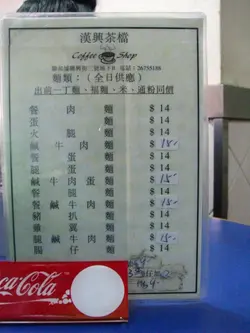 漢興茶檔
Coffee Shop
電話：26755188
麵類：（全日供應）
出前一丁麵、福麵、米、通粉同價
餐肉麵 $14
蛋麵 $14
火腿麵 $14
鹹牛肉麵 $15-
餐蛋麵 $14
腿蛋麵 $14
鹹牛肉蛋麵 $15-
餐腿麵 $14
餐鹹牛肉麵 $15-
豬扒麵 $14
雞翼麵 $14
腿鹹牛肉麵 $15-
腸仔麵 $14
Coca-Cola